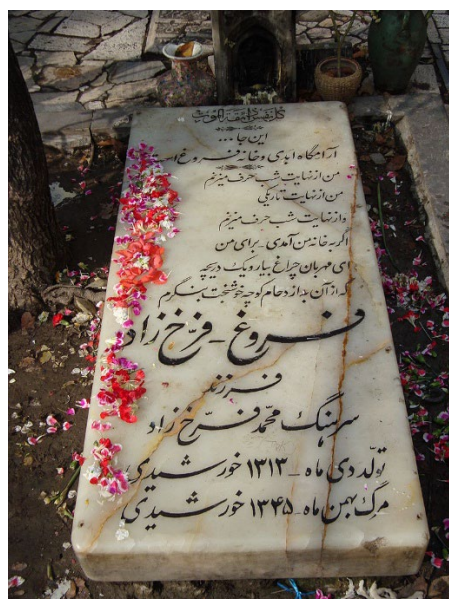 کل نفس ذائقة الموت
این جا ...
آرامگاه ابدی و خانه فروغ است
من از نهایت شب حرف میزنم
من از نهایت تاریکی
و از نهایت شب حرف میزنم
اگر به خانه من آمدی - برای من
ای مهربان چراغ بیار و یک دریچه
که از آن به ازدحام کوچه خوشبخت بنگرم
فروغ - فرّخ زاد
فرزند
سرهنگ محمّد فرّخ زاد
تولّد دی ماه - ۱۳۱۳ خورشیدی
مرگ بهمن ماه - ۱۳۴۵ خورشیدی